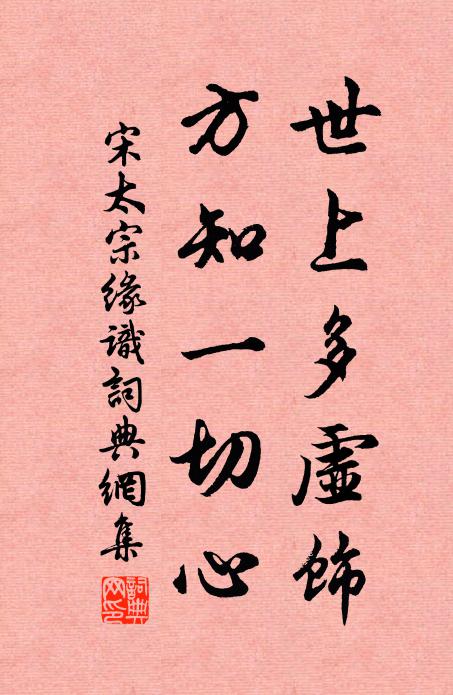 世上多虛飾
方知一切心
宋太宗緣識詞典網集
詞典網印